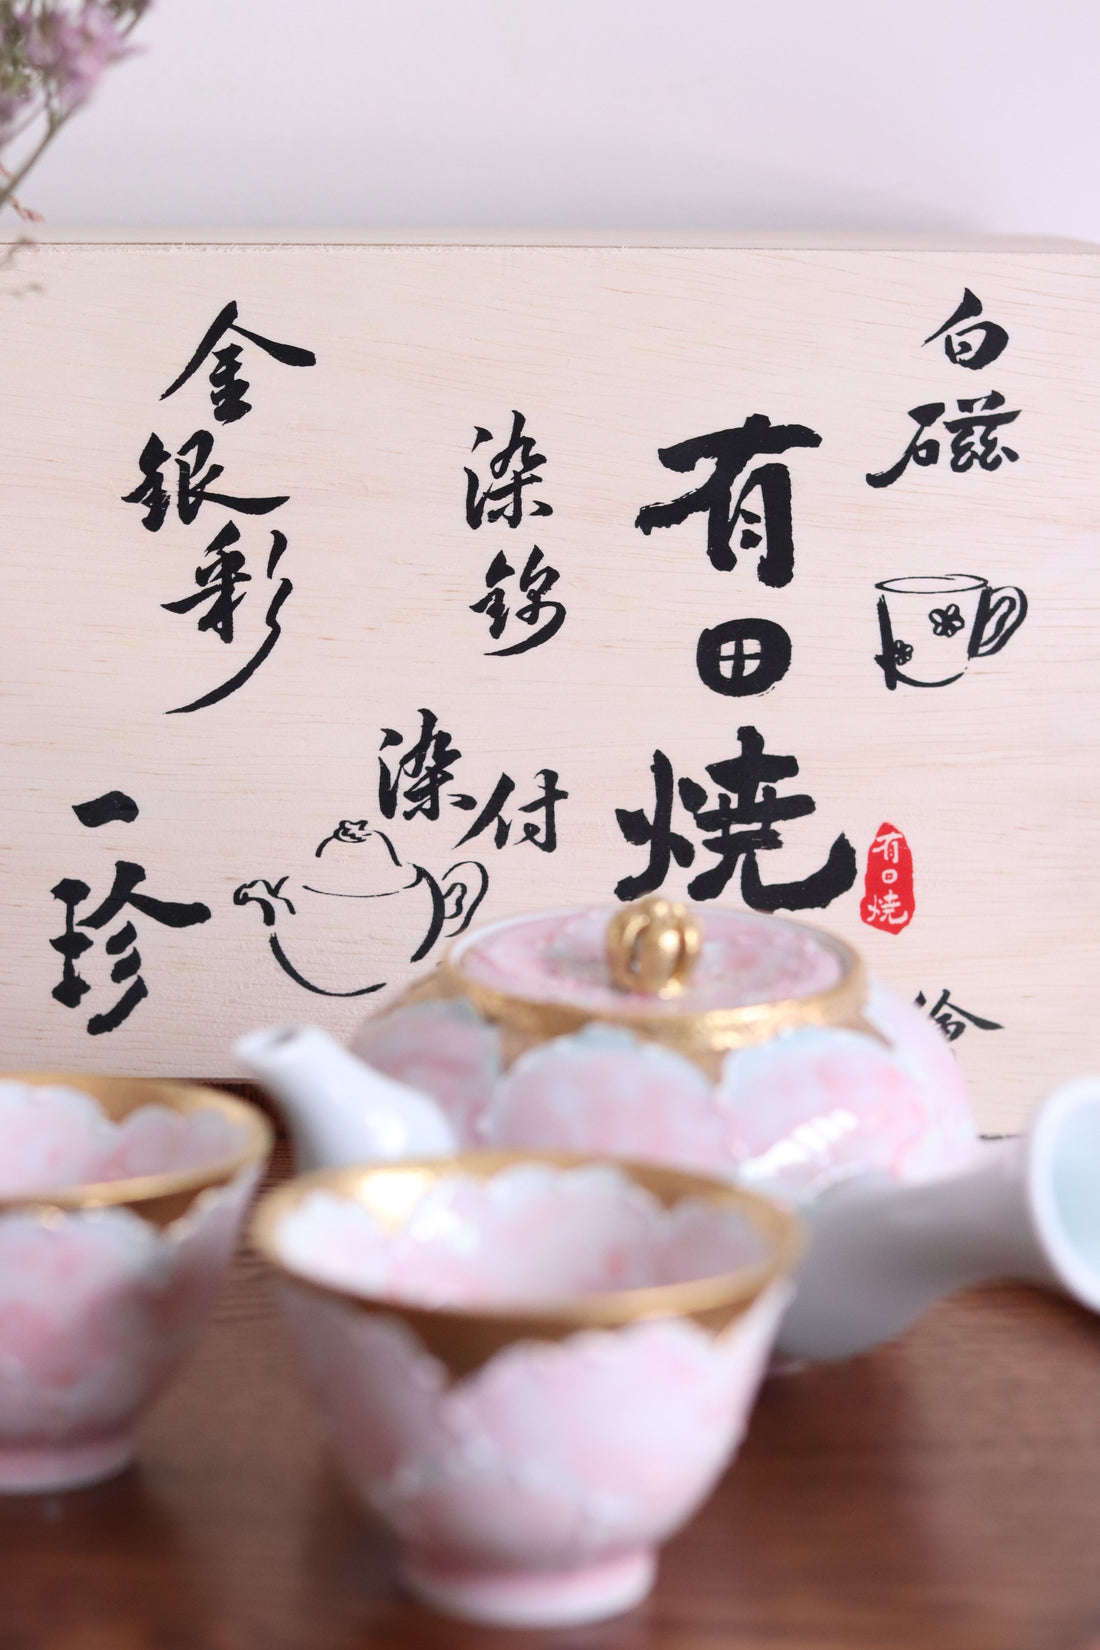 白磁
有田焼
有田焼
染錦
染付
金銀彩
一珍